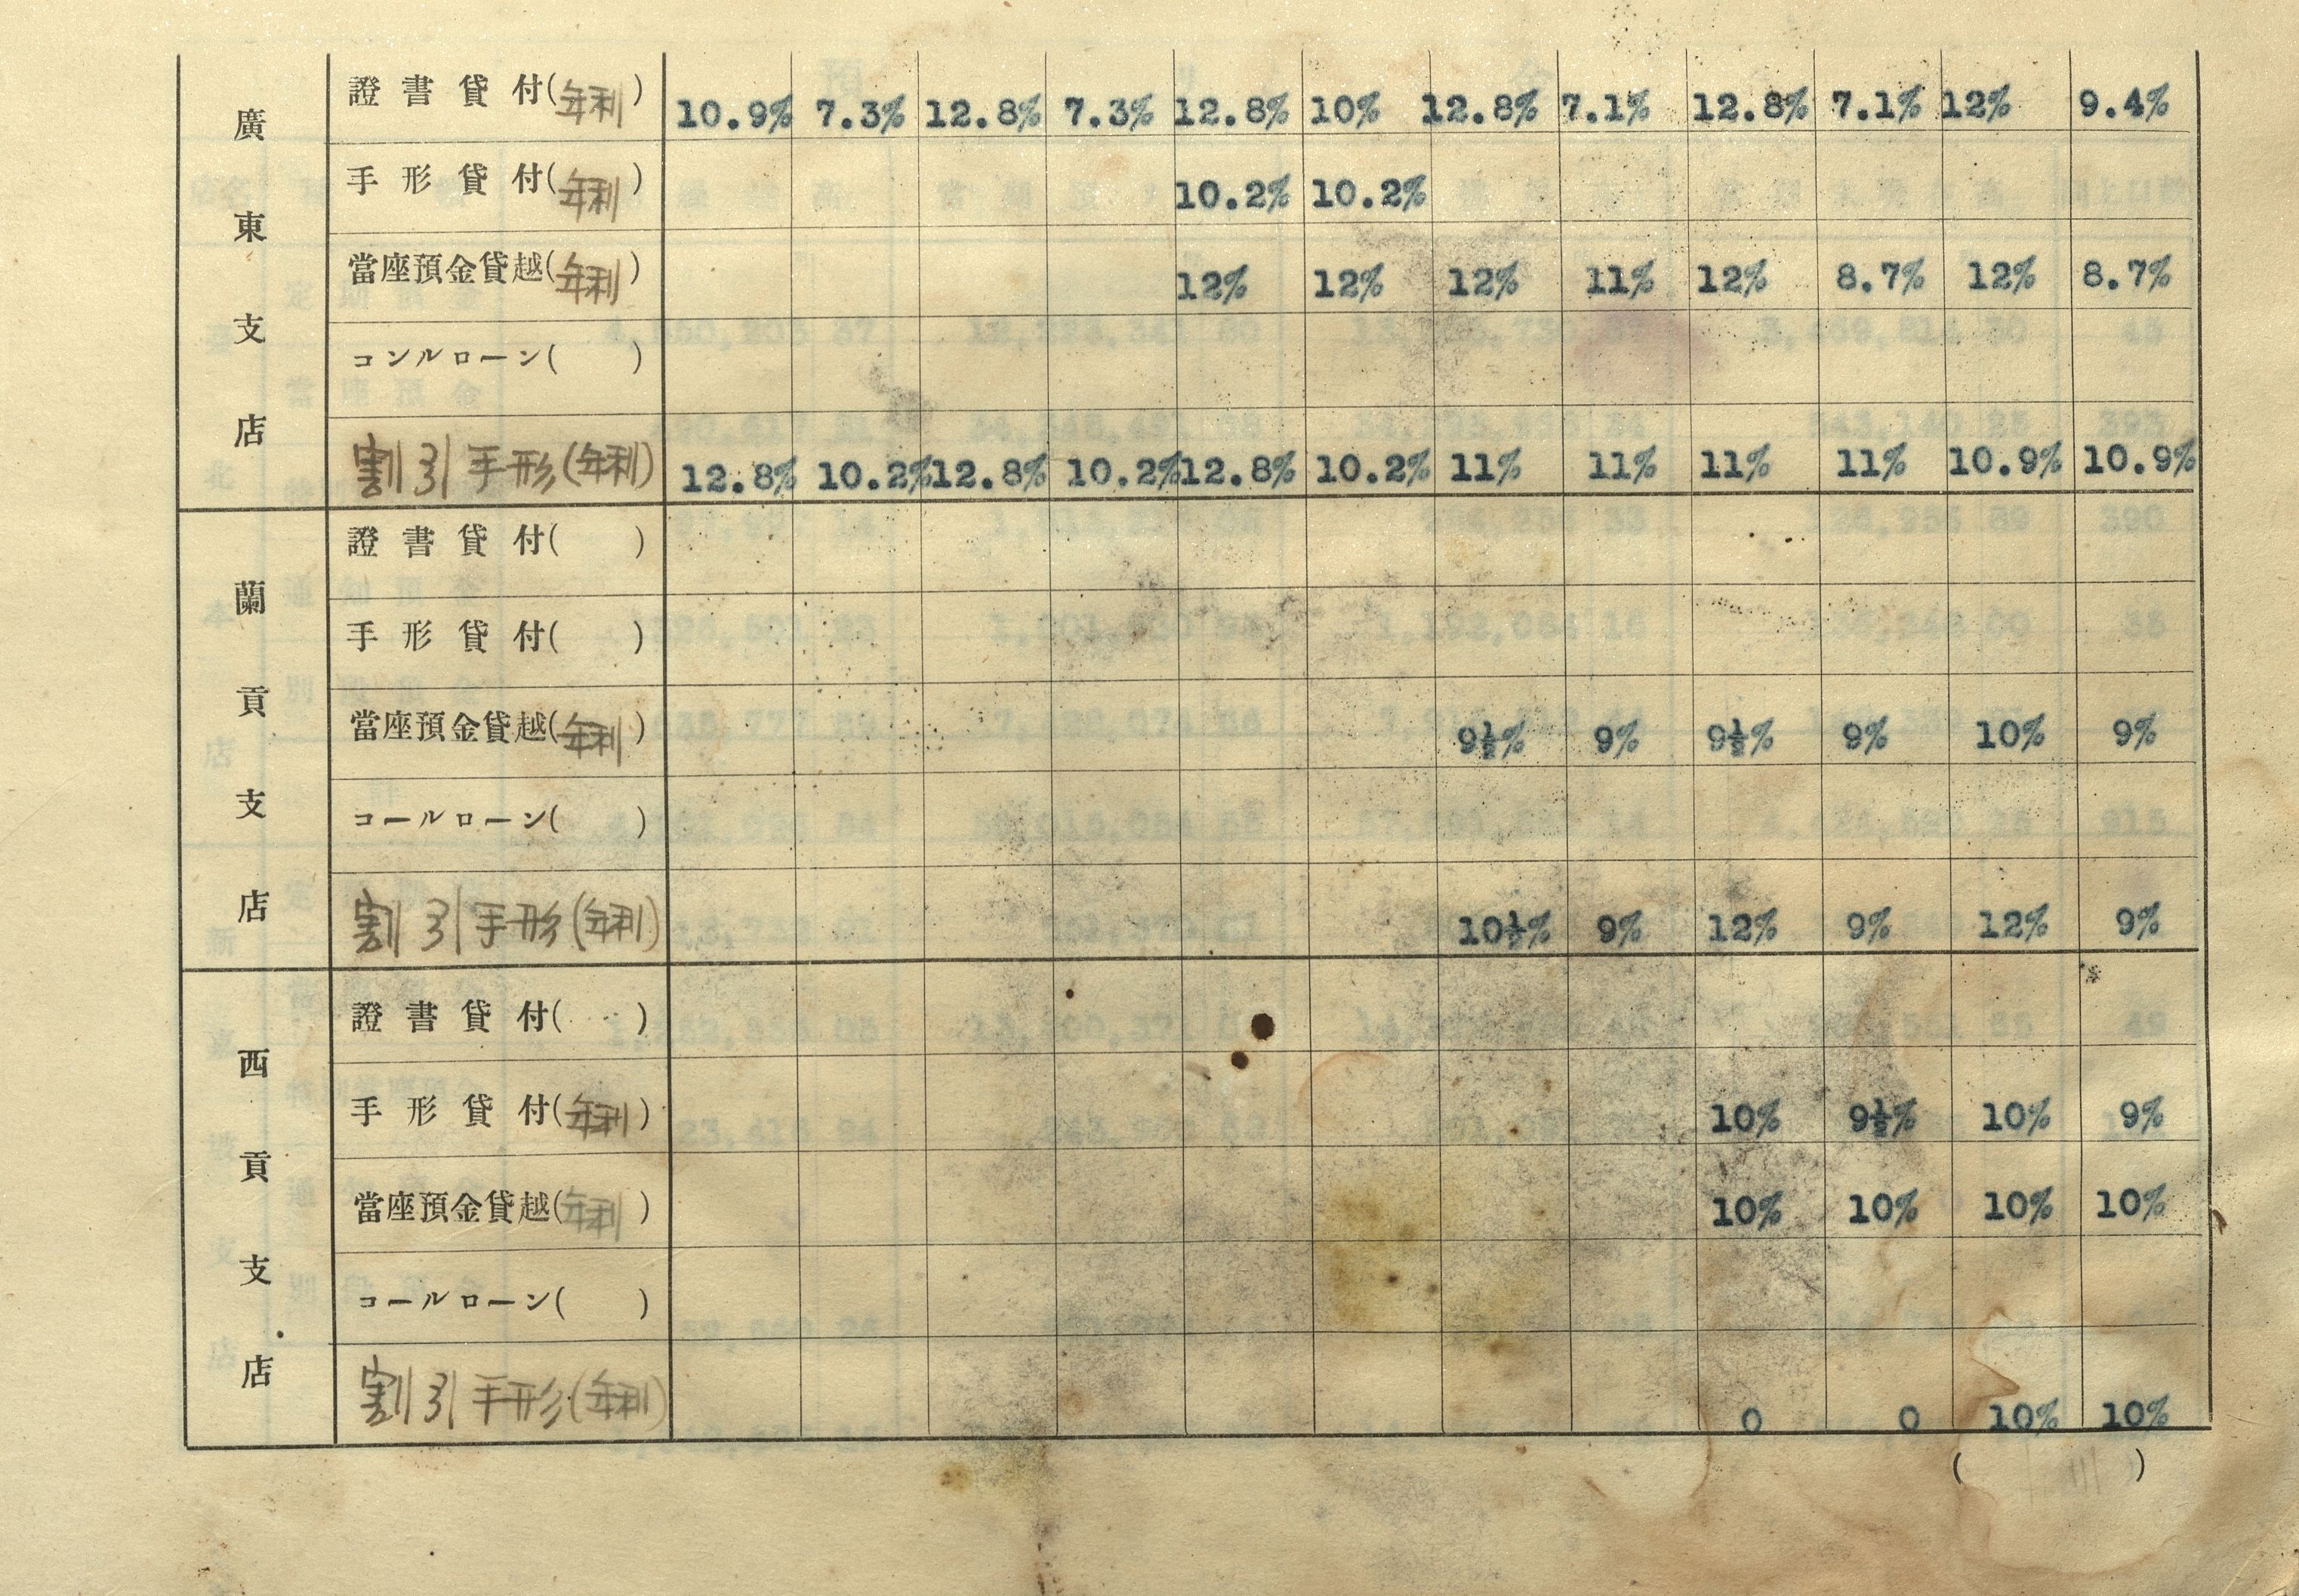 廣東支店
證書貸付(年利) 10.9% 7.3% 12.8% 7.3% 12.8% 10% 12.8% 7.1% 12.8% 7.1% 12% 9.4%
手形貸付(年利) 10.2% 10.2%
當座預金貸越(年利) 12% 12% 12% 11% 12% 8.7% 12% 8.7%
コンルローン( )
割引手形(年利) 12.8% 10.2% 12.8% 10.2% 12.8% 10.2% 11% 11% 11% 11% 10.9% 10.9%
蘭貢支店
證書貸付( )
手形貸付( )
當座預金貸越(年利) 9½% 9% 9½% 9% 10% 9%
コールローン( )
割引手形(年利) 10½% 9% 12% 9% 12% 9%
西貢支店
證書貸付( )
手形貸付(年利) 10% 9½% 10% 9%
當座預金貸越(年利) 10% 10% 10% 10%
コールローン( )
割引手形(年利) 0 0 10% 10%
( )